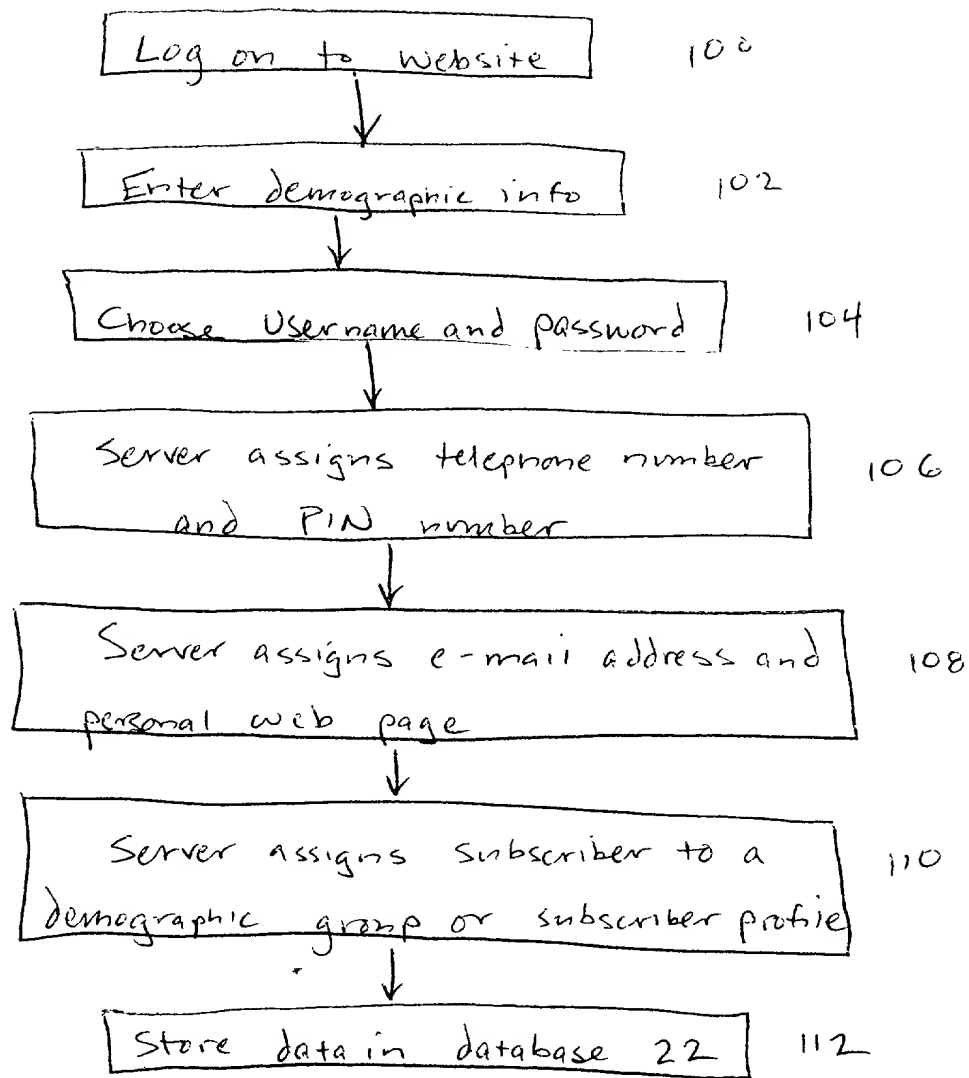 Log on to website 100
Enter demographic info 102
Choose Username and password 104
Server assigns telephone number 106
and PIN number
Server assigns e-mail address and 108
personal web page
Server assigns subscriber to a 110
demographic group or subscriber profile
Store data in database 22 112